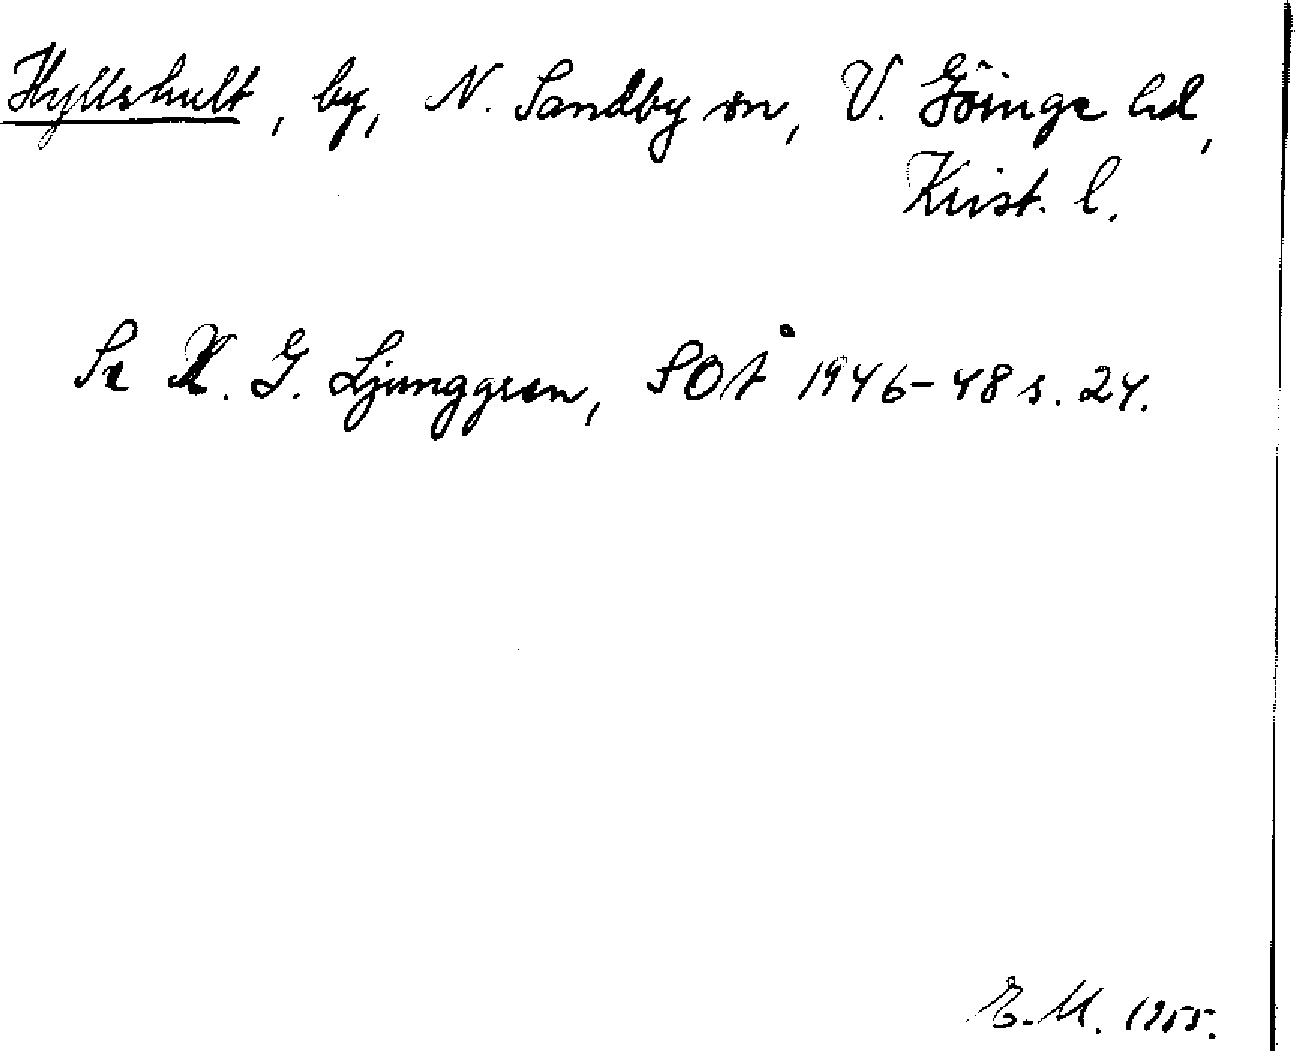 Hyllshult, by, N. Sandby sn, V. Göinge hd,
Krist. l.
Se K. G. Ljunggren, SOÅ 1946-48 s. 24.
E.M. 1955.